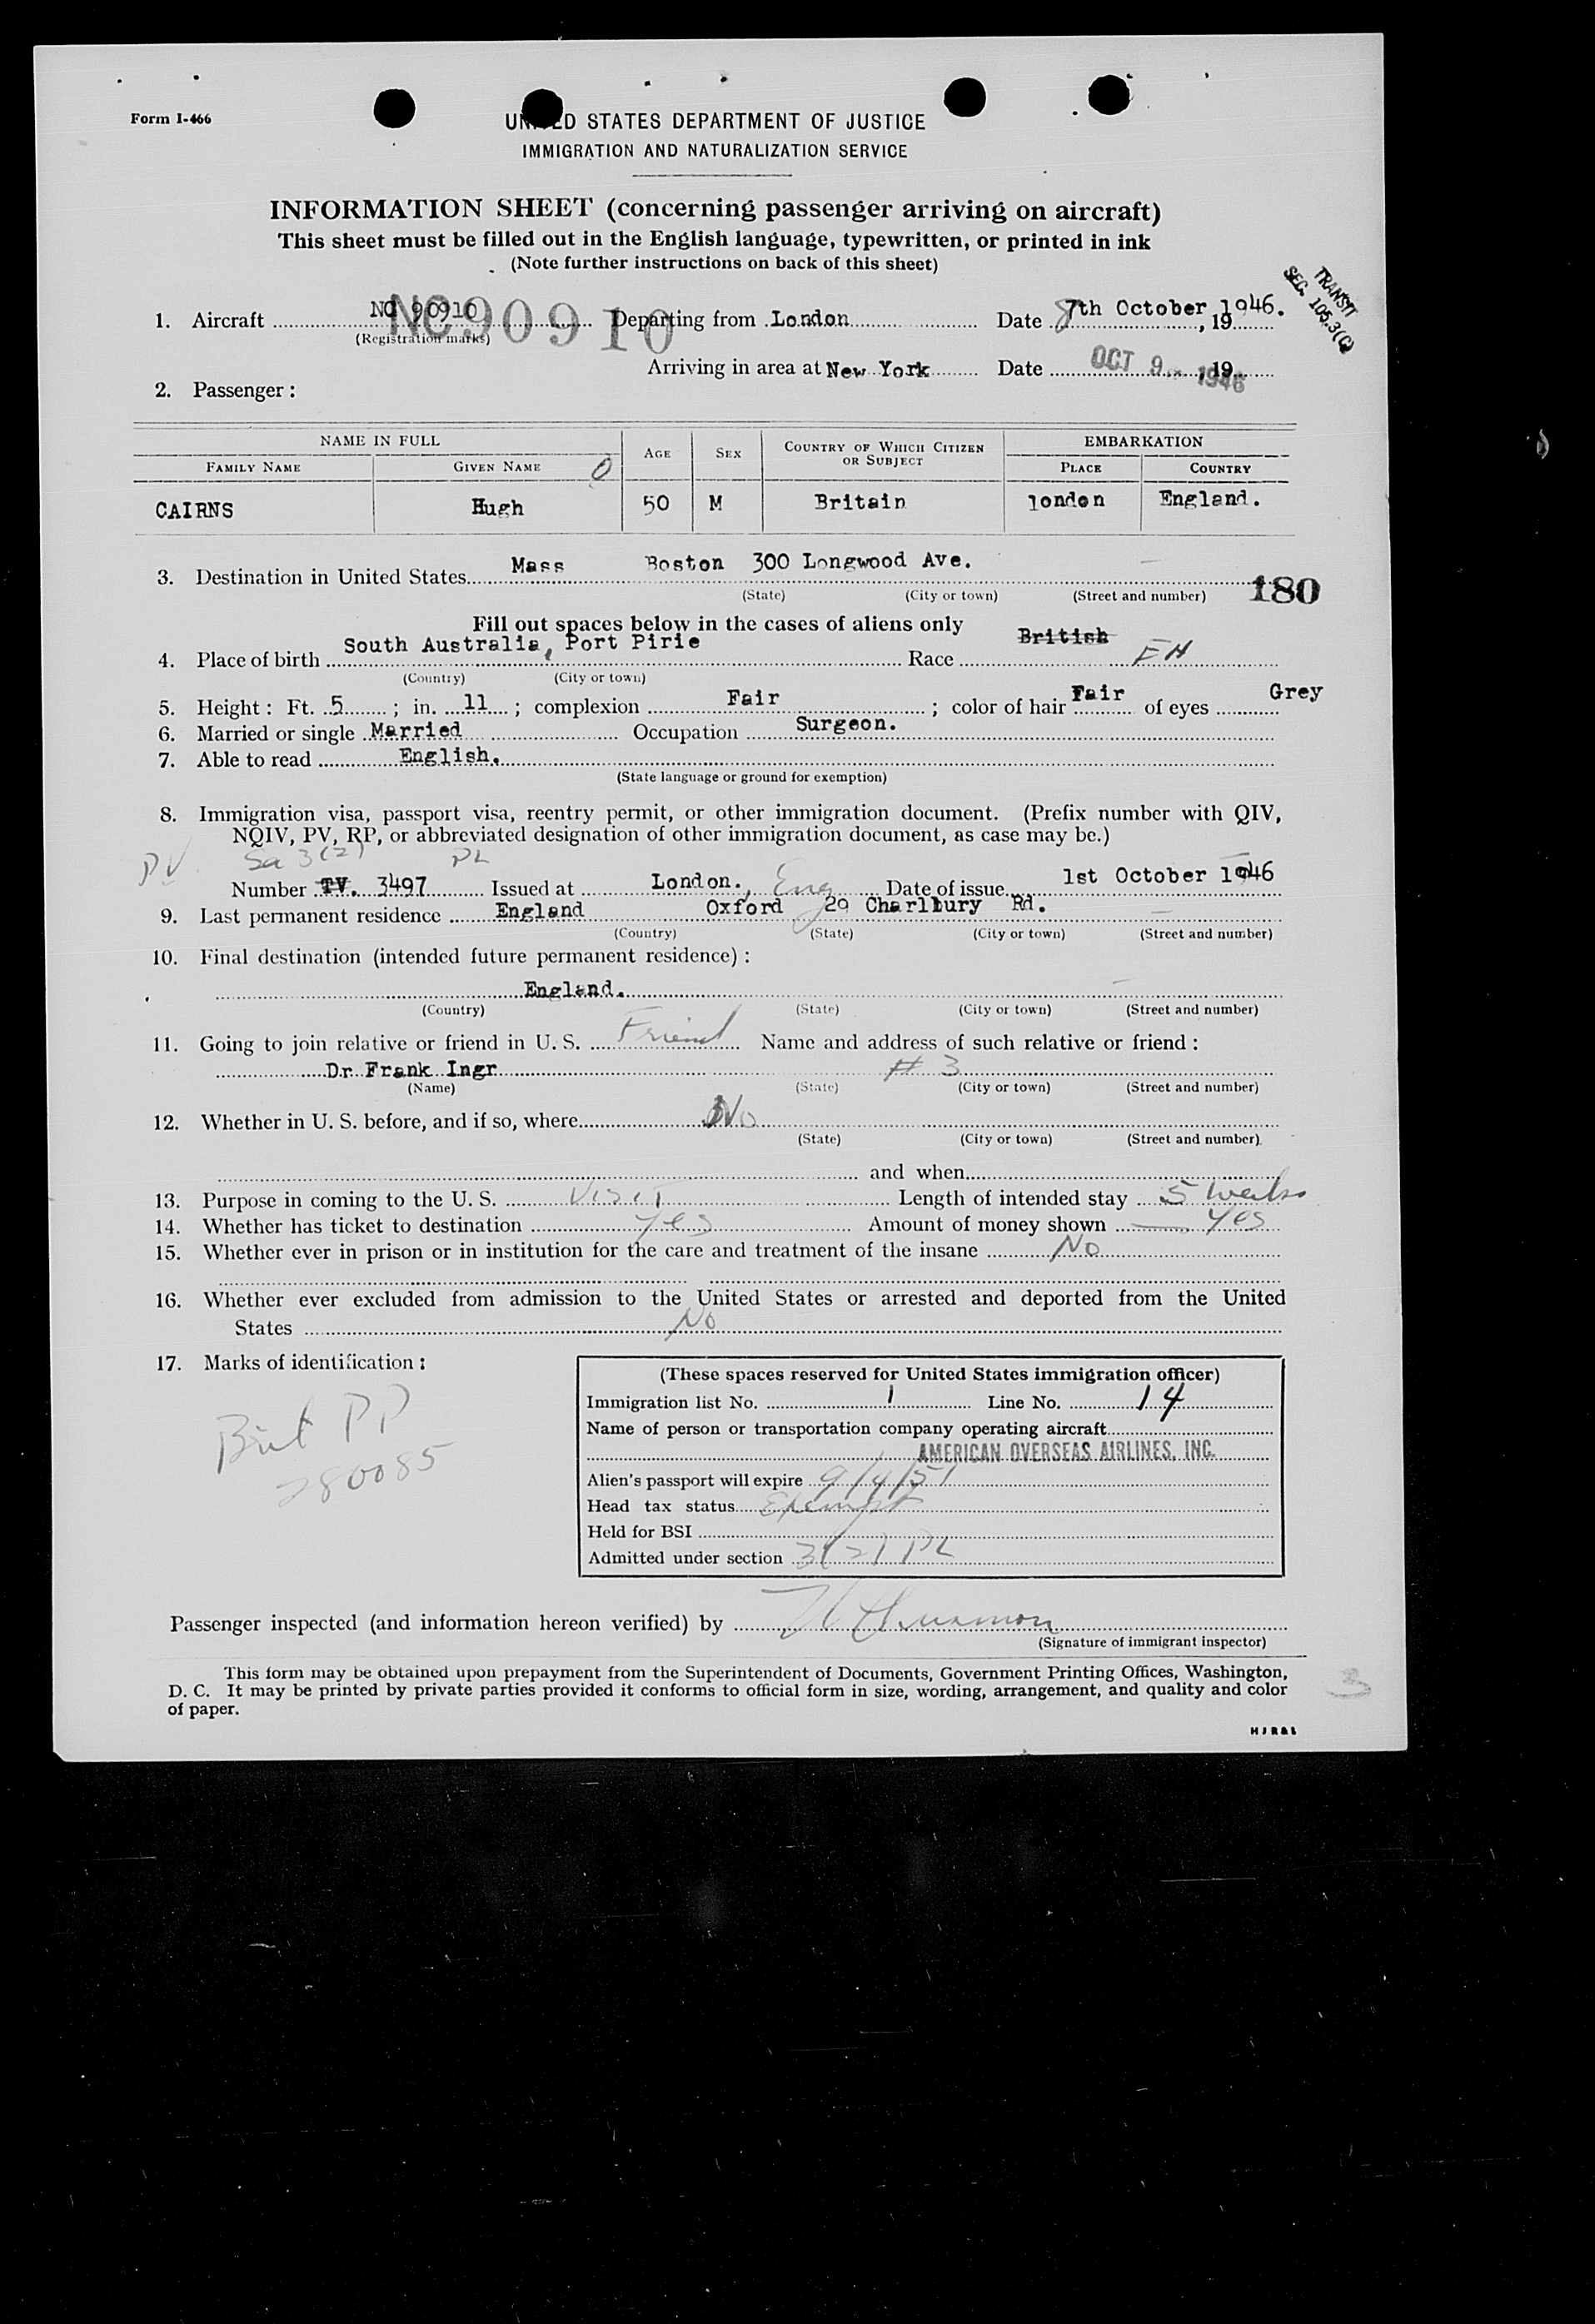 Form I-466
UNITED STATES DEPARTMENT OF JUSTICE
IMMIGRATION AND NATURALIZATION SERVICE
INFORMATION SHEET (concerning passenger arriving on aircraft)
This sheet must be filled out in the English language, typewritten, or printed in ink
(Note further instructions on back of this sheet)
TRANSIT
SEC. 105.3(C)
1. Aircraft NC 90910 NC90910 Departing from London Date 7th October, 1946.
(Registration marks)
Arriving in area at New York Date OCT 9 1946, 19
2. Passenger:
NAME IN FULL AGE SEX COUNTRY OF WHICH CITIZEN OR SUBJECT EMBARKATION
FAMILY NAME GIVEN NAME PLACE COUNTRY
CAIRNS Hugh 50 M Britain london England.
3. Destination in United States Mass Boston 300 Longwood Ave.
(State) (City or town) (Street and number) 180
Fill out spaces below in the cases of aliens only
4. Place of birth South Australia, Port Pirie Race British
(Country) (City or town)
5. Height: Ft. 5; in. 11; complexion Fair; color of hair Fair of eyes Grey
6. Married or single Married Occupation Surgeon.
7. Able to read English.
(State language or ground for exemption)
8. Immigration visa, passport visa, reentry permit, or other immigration document. (Prefix number with QIV,
NQIV, PV, RP, or abbreviated designation of other immigration document, as case may be.)
PV Sa 3(2) PL
Number TV. 3497 Issued at London., Eng Date of issue 1st October 1946
9. Last permanent residence England Oxford 29 Charlbury Rd.
(Country) (State) (City or town) (Street and number)
10. Final destination (intended future permanent residence):
England.
(Country) (State) (City or town) (Street and number)
11. Going to join relative or friend in U. S. Friend Name and address of such relative or friend:
Dr Frank Ingr # 3
(Name) (State) (City or town) (Street and number)
12. Whether in U. S. before, and if so, where No
(State) (City or town) (Street and number)
and when
13. Purpose in coming to the U. S. Visit Length of intended stay 5 weeks
14. Whether has ticket to destination Yes Amount of money shown Yes
15. Whether ever in prison or in institution for the care and treatment of the insane No
16. Whether ever excluded from admission to the United States or arrested and deported from the United
States No
17. Marks of identification:
Brit PP
280085
(These spaces reserved for United States immigration officer)
Immigration list No. 1 Line No. 14
Name of person or transportation company operating aircraft
AMERICAN OVERSEAS AIRLINES, INC.
Alien's passport will expire 9/4/51
Head tax status Exempt
Held for BSI
Admitted under section 3(2) PL
Passenger inspected (and information hereon verified) by
(Signature of immigrant inspector)
This form may be obtained upon prepayment from the Superintendent of Documents, Government Printing Offices, Washington,
D. C. It may be printed by private parties provided it conforms to official form in size, wording, arrangement, and quality and color
of paper.
3